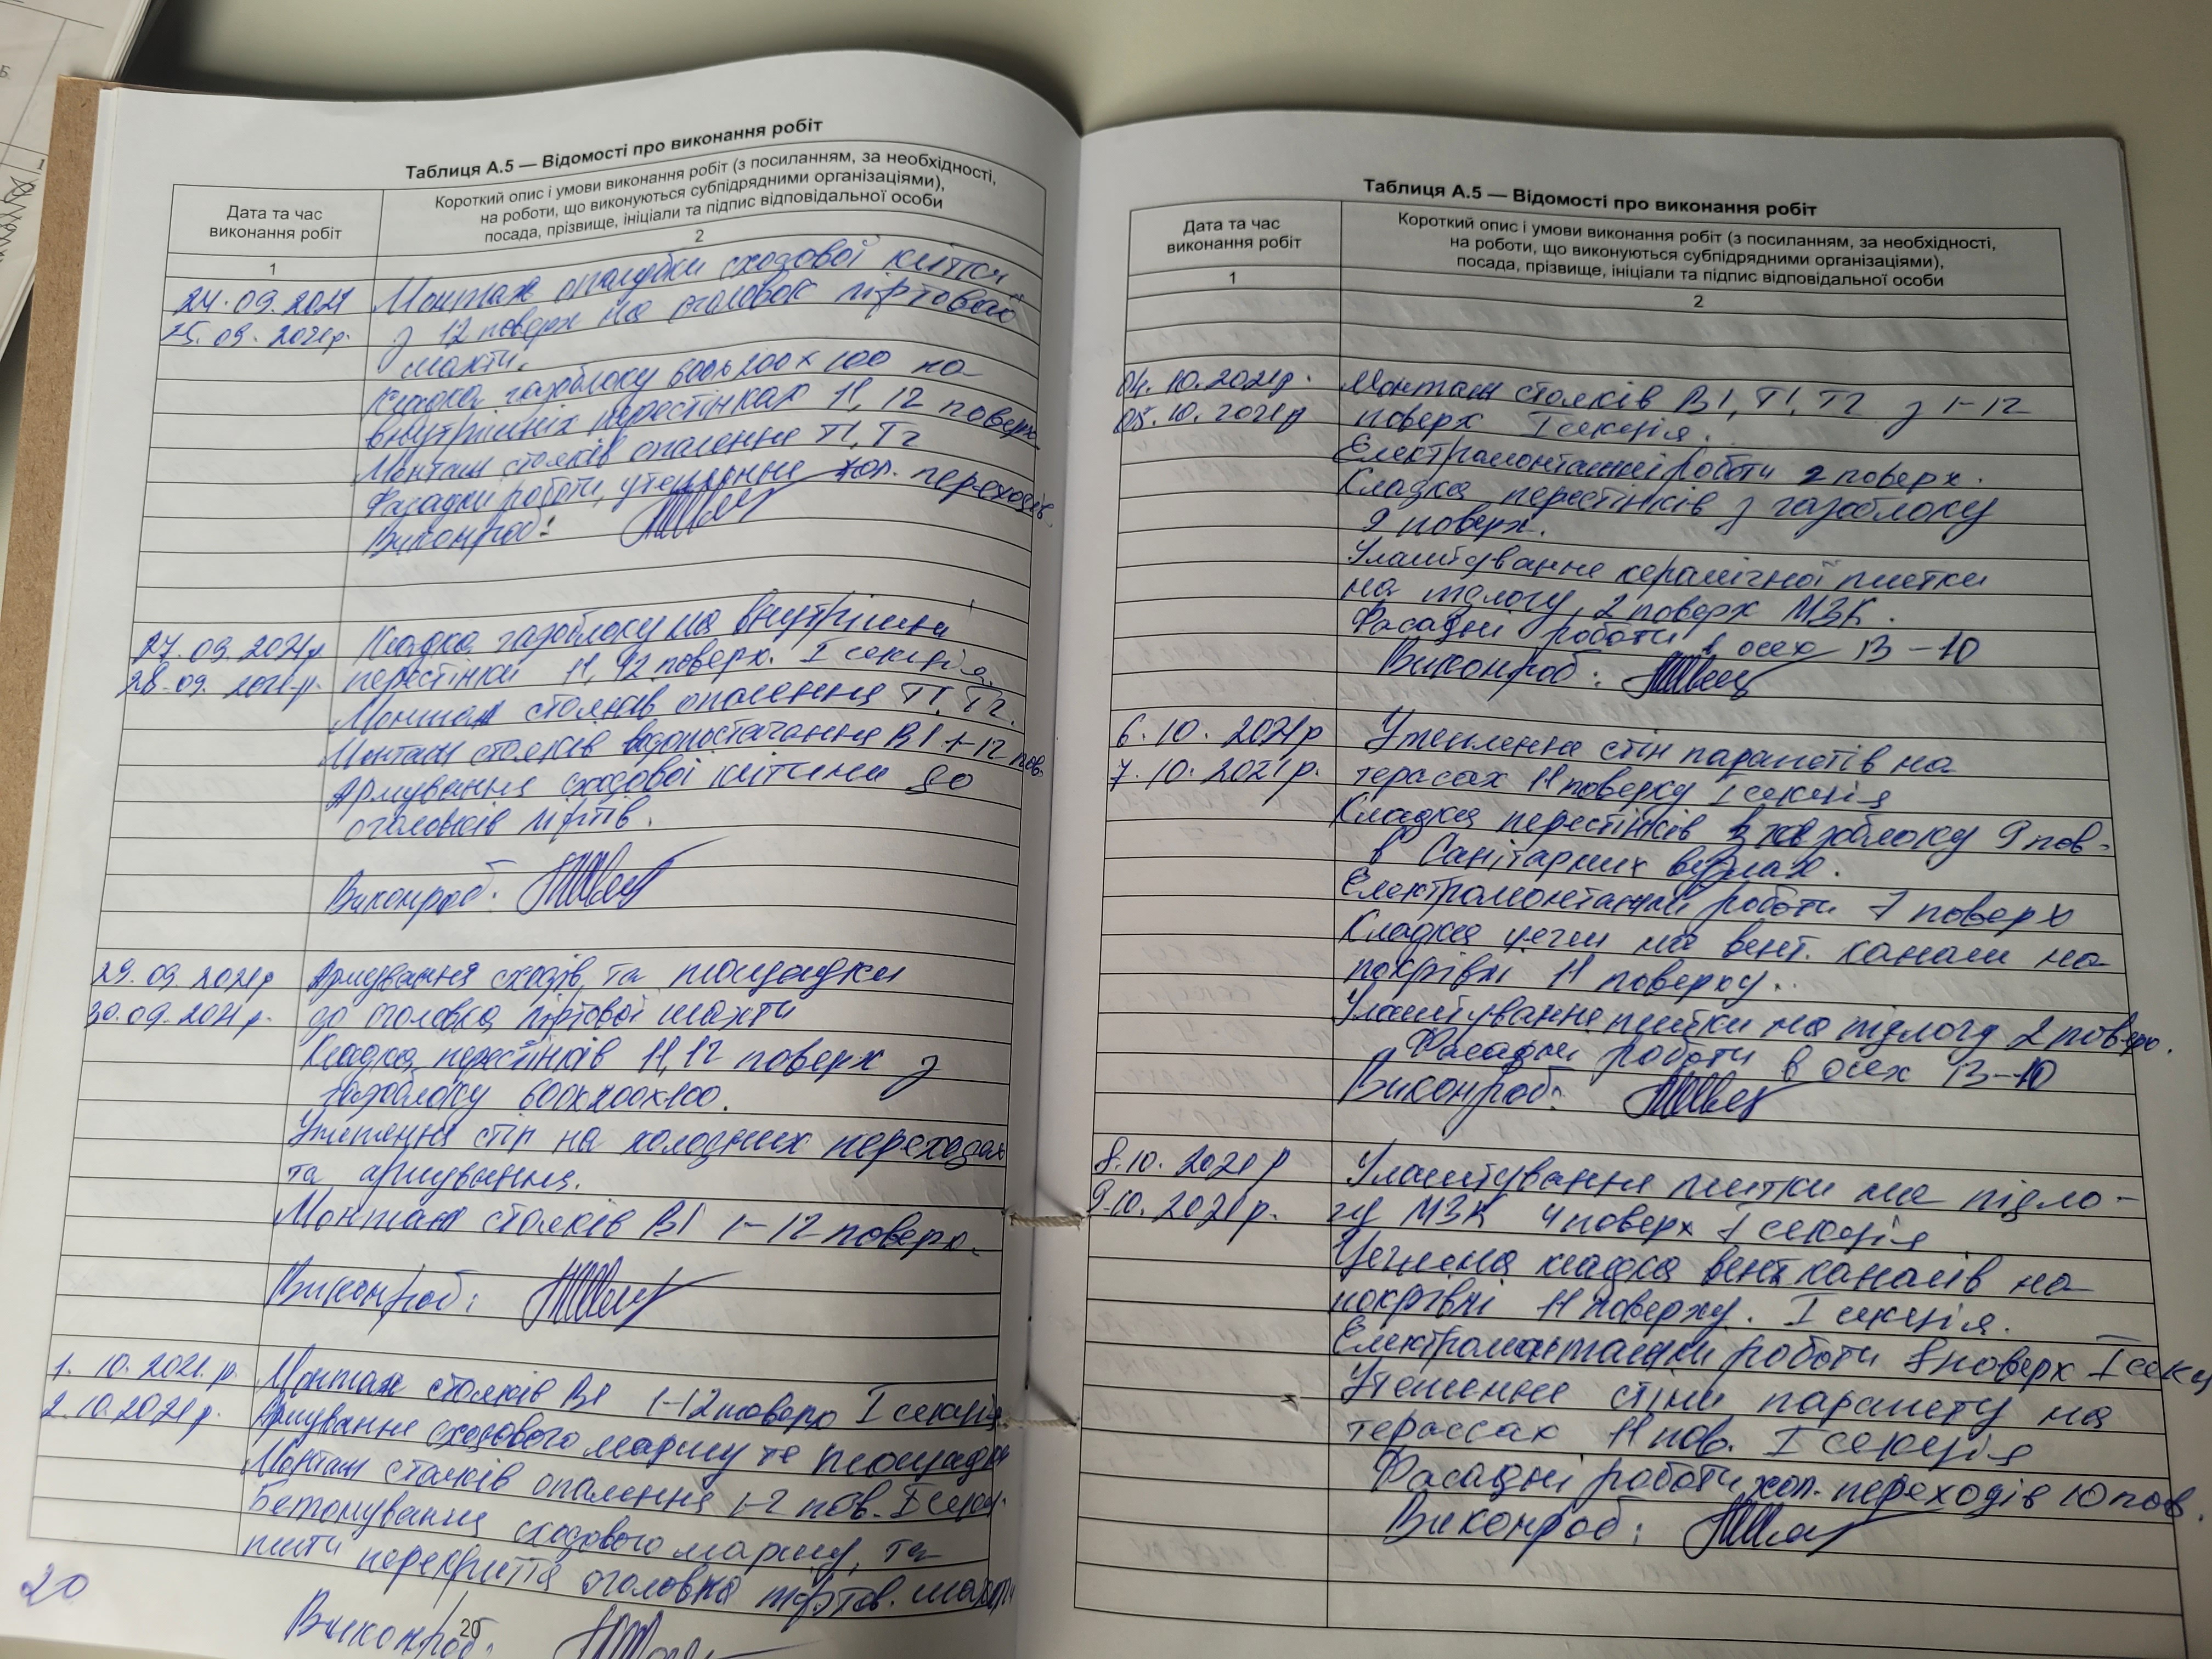 Таблиця А.5 — Відомості про виконання робіт
Дата та час
виконання робіт
Короткий опис і умови виконання робіт (з посиланням, за необхідності,
на роботи, що виконуються субпідрядними організаціями),
посада, прізвище, ініціали та підпис відповідальної особи
1
2
24.09.2021 Монтаж опалубки сходової клітки
25.09.2021р. з 12 поверх на оголовок ліфтової
шахти.
Кладка газоблоку 600х200х100 на
внутрішніх перестінках 11, 12 поверх
Монтаж стояків опалення Т1, Т2
Фасадні роботи, утеплення хол. переходів.
Виконроб:
27.09.2021р Кладка газоблоку на внутрішні
28.09.2021р. перестінки 11, 12 поверх. І секція.
Монтаж стояків опалення Т1, Т2.
Монтаж стояків водопостачання В1 1-12 пов.
Армування сходової клітини до
оголовків ліфтів.
Виконроб:
29.09.2021р Армування сходів та площадки
30.09.2021р. до оголовка ліфтової шахти
Кладка перестінків 11,12 поверх з
газоблоку 600х200х100.
Утеплення стін на холодних переходах
та армування.
Монтаж стояків В1 1-12 поверх.
Виконроб:
1.10.2021.р. Монтаж стояків В1 1-12 поверх І секція
2.10.2021р. Армування сходового маршу та площадки
Монтаж стояків опалення 1-2 пов. І секц.
Бетонування сходового маршу, та
плити перекриття оголовка ліфтов. шахти
Виконроб:
20
20
Таблиця А.5 — Відомості про виконання робіт
Дата та час
виконання робіт
Короткий опис і умови виконання робіт (з посиланням, за необхідності,
на роботи, що виконуються субпідрядними організаціями),
посада, прізвище, ініціали та підпис відповідальної особи
1
2
04.10.2021р. Монтаж стояків В1, Т1, Т2 з 1-12
05.10.2021р поверх І секція.
Електромонтажні роботи 2 поверх.
Кладка перестінків з газоблоку
9 поверх.
Улаштування керамічної плитки
на підлогу, 2 поверх МЗК.
Фасадні роботи в осех 13-10
Виконроб:
6.10.2021р Утеплення стін парапетів на
7.10.2021р. терасах 11 поверху І секція
Кладка перестінків з газоблоку 9 пов.
в санітарних вузлах.
Електромонтажні роботи 7 поверх
Кладка цегли на вент. канали на
покрівлі 11 поверху.
Улаштування плитки на підлогу 2 поверх.
Фасадні роботи в осех 13-10
Виконроб:
8.10.2021р Улаштування плитки на підло-
9.10.2021р. гу МЗК 4 поверх 1 секція
Цегляна кладка вентканалів на
покрівлі 11 поверху. І секція.
Електромонтажні роботи 8 поверх І секц
Утеплення стіни парапету на
терассах 11 пов. І секція
Фасадні роботи хол. переходів 10 пов.
Виконроб: